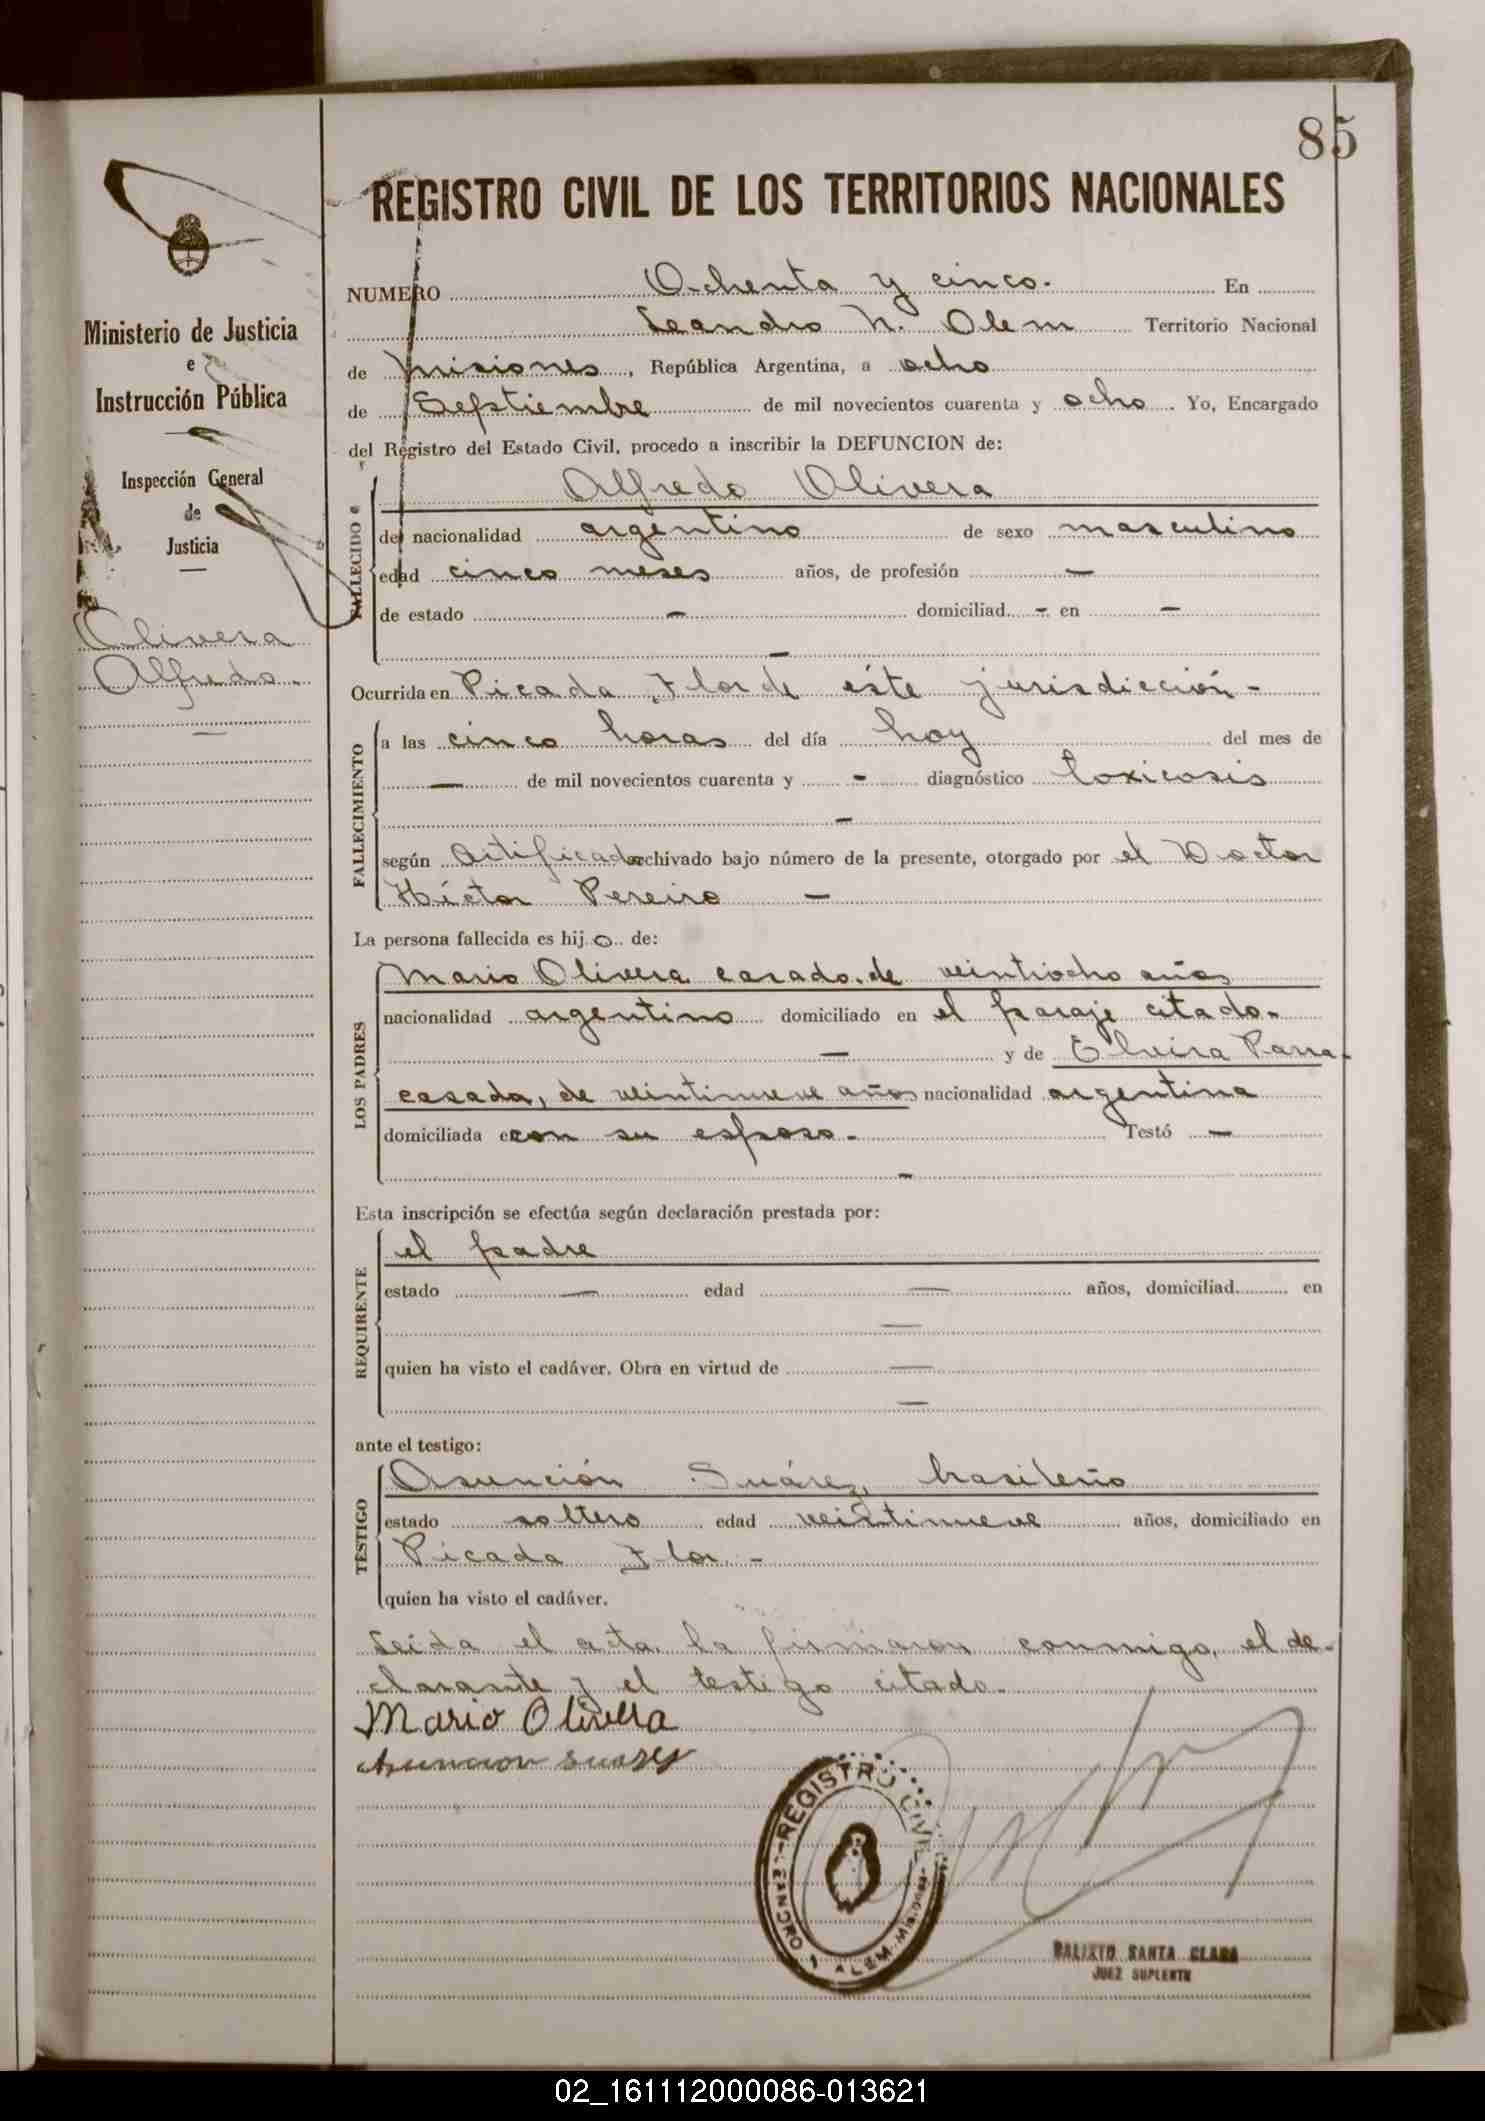 85
REGISTRO CIVIL DE LOS TERRITORIOS NACIONALES
Ministerio de Justicia
e
Instrucción Pública
Inspección General
de
Justicia
Olivera
Alfredo.
NUMERO Ochenta y cinco. En
Leandro N. Alem Territorio Nacional
de Misiones, República Argentina, a ocho
de Septiembre de mil novecientos cuarenta y ocho. Yo, Encargado
del Registro del Estado Civil, procedo a inscribir la DEFUNCION de:
FALLECIDO
Alfredo Olivera
de nacionalidad argentino de sexo masculino
edad cinco meses años, de profesión —
de estado — domiciliad - en —
—
Ocurrida en Picada Flor de éste jurisdicción -
FALLECIMIENTO
a las cinco horas del día hoy del mes de
— de mil novecientos cuarenta y - diagnóstico toxicosis
—
según certificado archivado bajo número de la presente, otorgado por el Doctor
Héctor Pereiro —
La persona fallecida es hijo de:
LOS PADRES
Mario Olivera casado, de veintiocho años
nacionalidad argentino domiciliado en el paraje citado.
— y de Elvira Parra
casada, de veintinueve años nacionalidad argentina
domiciliada con su esposo. Testó —
-
Esta inscripción se efectúa según declaración prestada por:
REQUIRENTE
el padre
estado — edad — años, domiciliad en
—
quien ha visto el cadáver. Obra en virtud de —
—
ante el testigo:
TESTIGO
Asunción Suárez, brasileño
estado soltero edad veintinueve años, domiciliado en
Picada Flor -
quien ha visto el cadáver.
Leida el acta, la firmaron conmigo, el de-
clarante y el testigo citado.
Mario Olivera
Asuncion Suarez
REGISTRO CIVIL
LEANDRO N. ALEM - Misiones
CALIXTO SANTA CLARA
JUEZ SUPLENTE
02_161112000086-013621